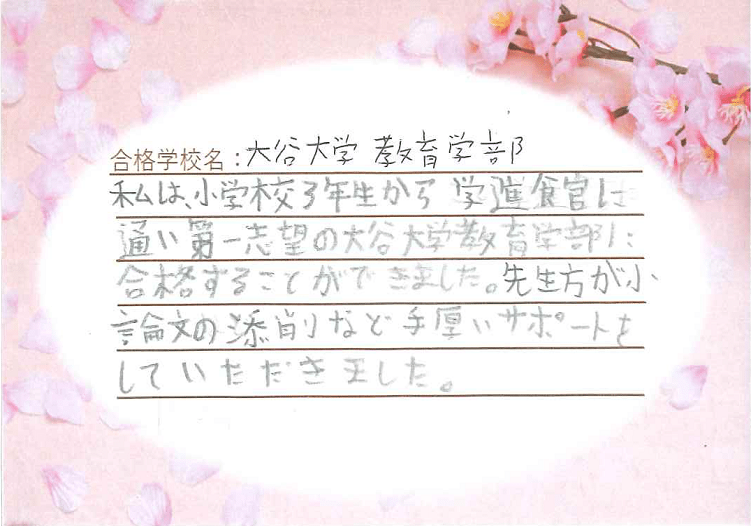 合格学校名：大谷大学 教育学部
私は、小学校3年生から 学進館に
通い第一志望の大谷大学教育学部に
合格することができました。先生方が小
論文の添削など手厚いサポートを
していただきました。